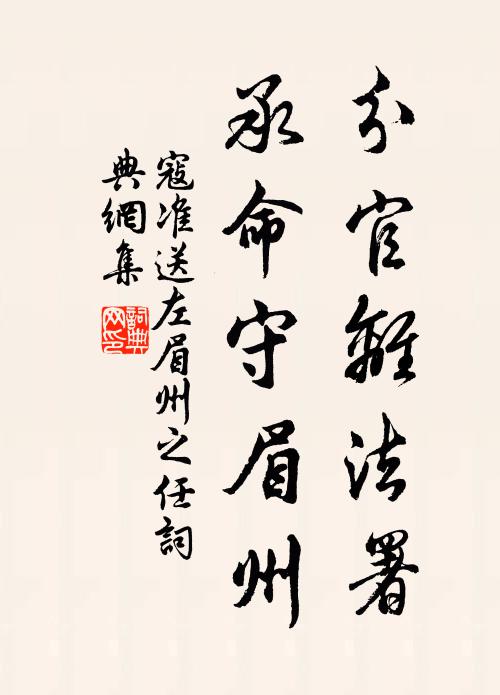 分官離法署
承命守眉州
寇准送左眉州之任詞
典網集
詞典网印